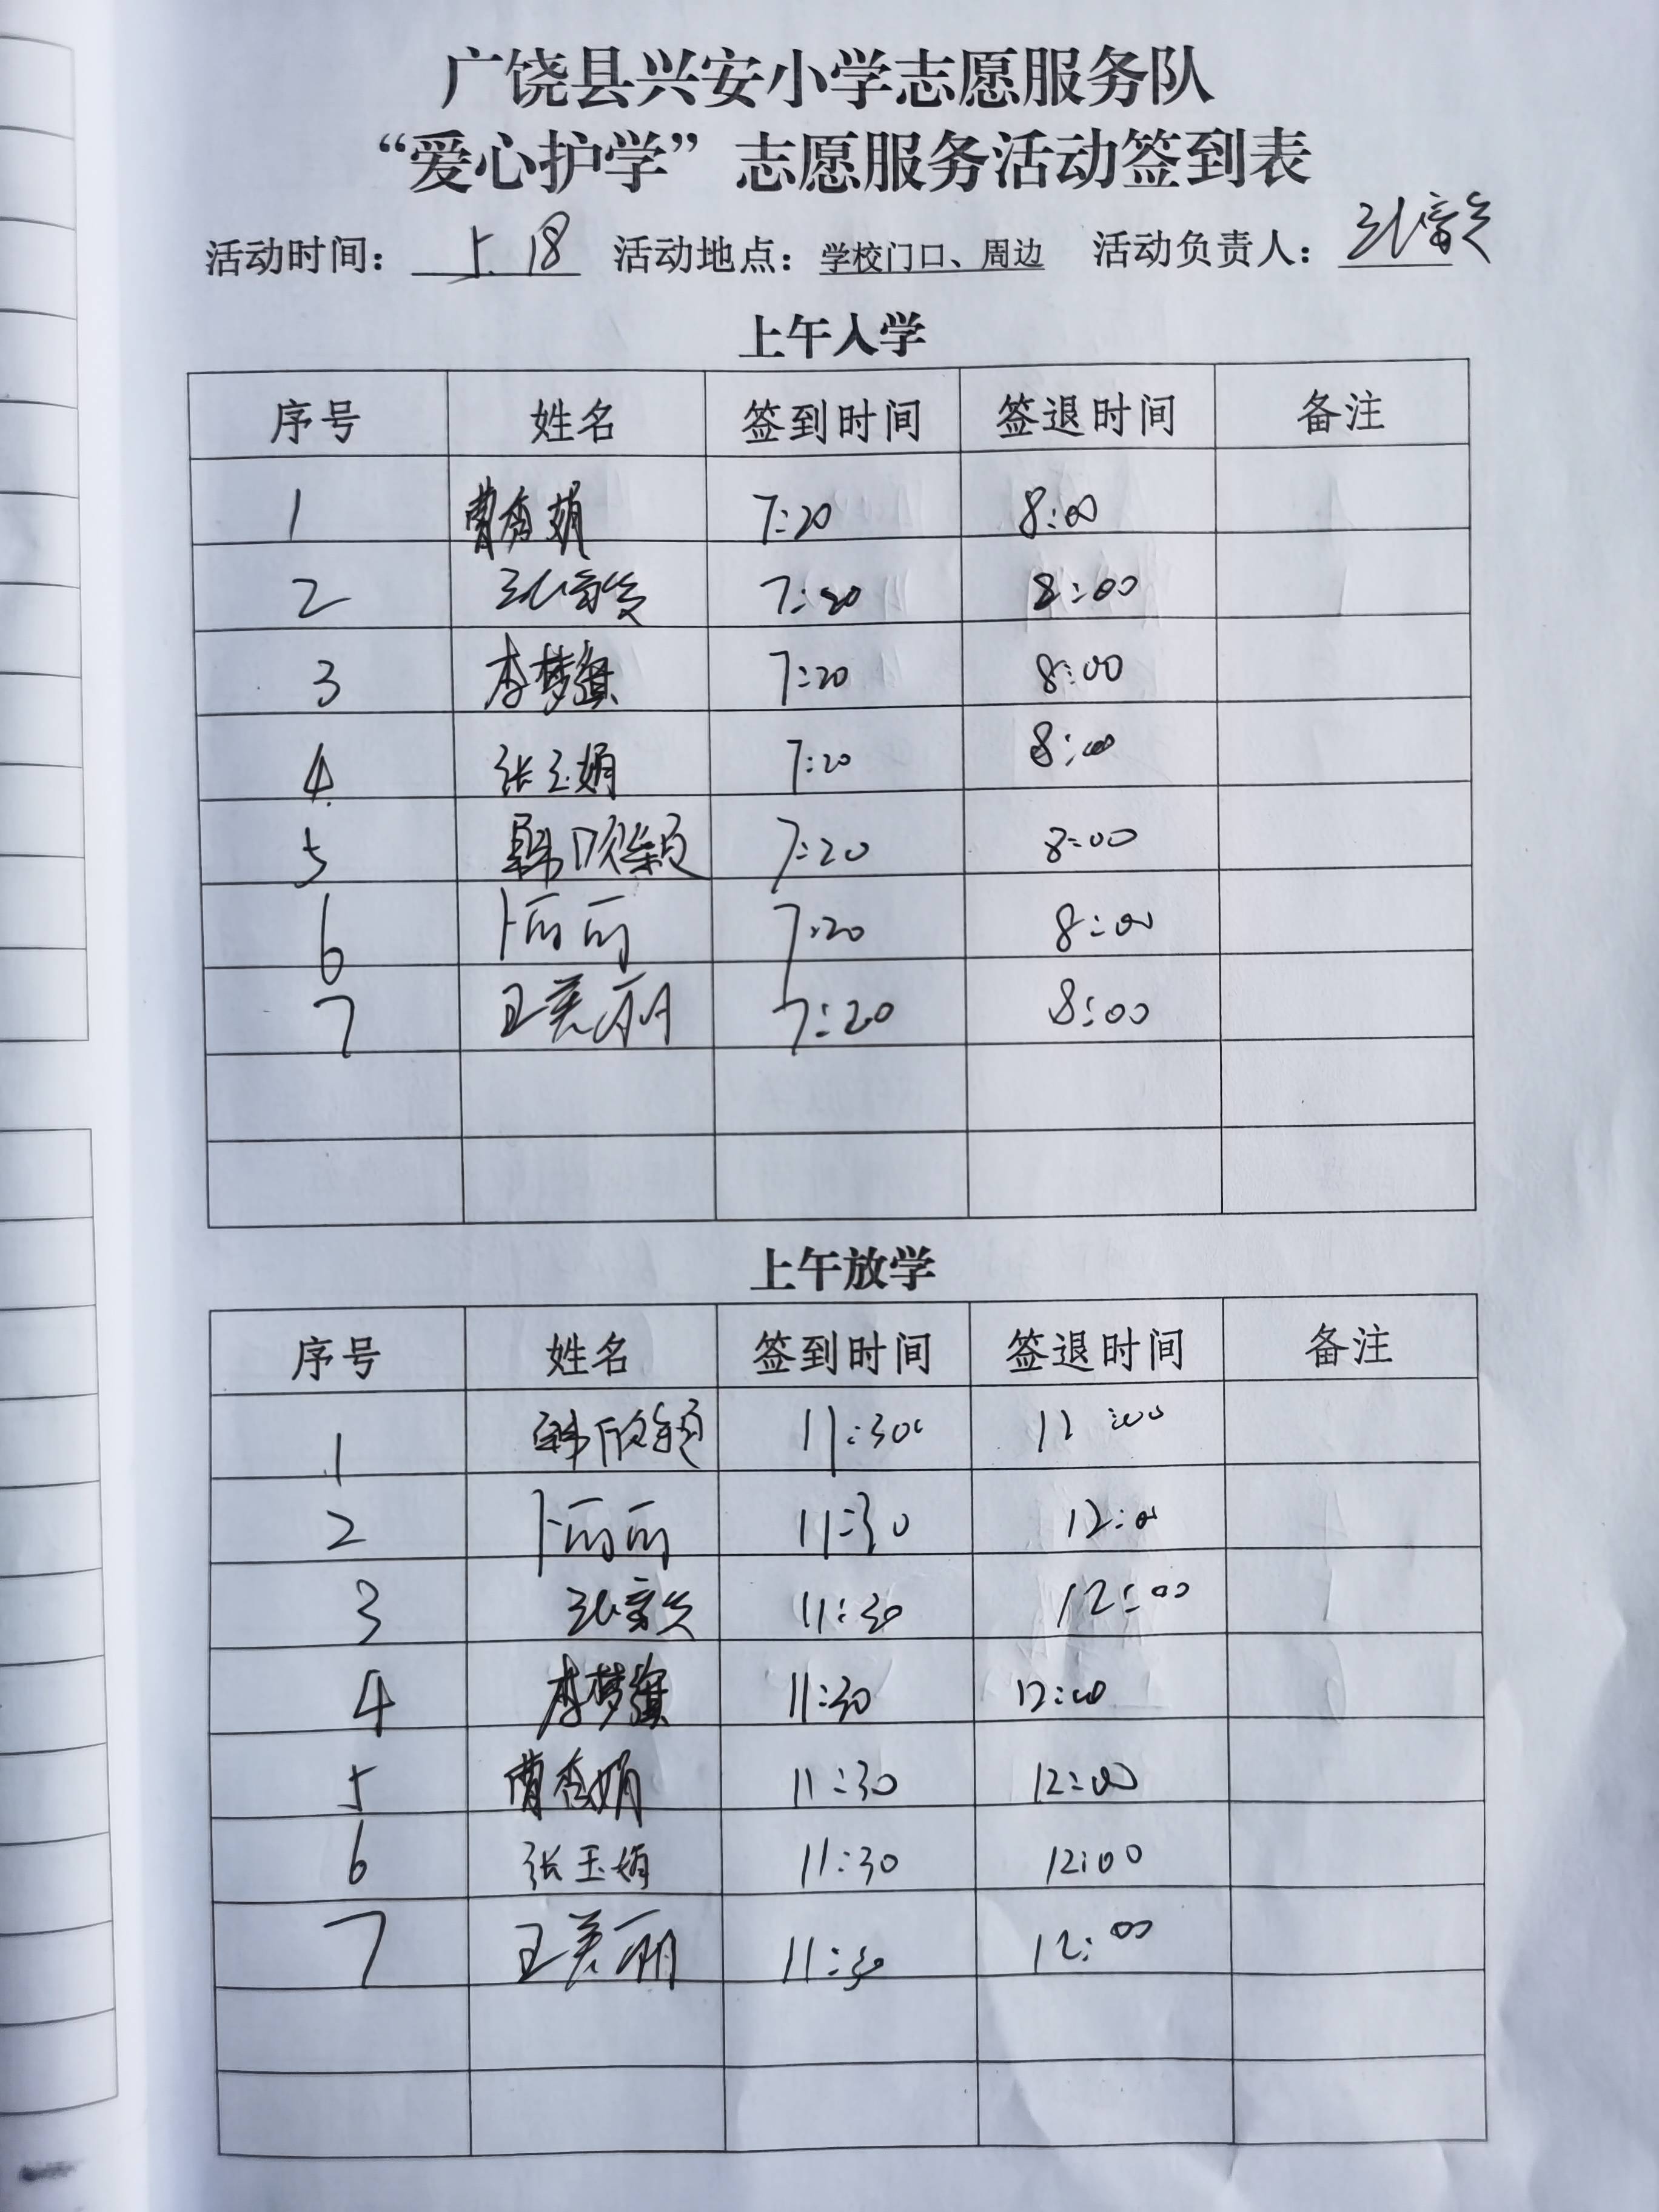 广饶县兴安小学志愿服务队
“爱心护学”志愿服务活动签到表
活动时间: 5.18 活动地点: 学校门口、周边 活动负责人:
上午入学
序号 姓名 签到时间 签退时间 备注
1 曹秀娟 7:20 8:00
2 7:20 8:00
3 李梦 7:20 8:00
4 张玉娟 7:20 8:00
5 韩欣颖 7:20 8:00
6 卜丽丽 7:20 8:00
7 王美丽 7:20 8:00
上午放学
序号 姓名 签到时间 签退时间 备注
1 韩欣颖 11:30 12:00
2 卜丽丽 11:30 12:00
3 11:30 12:00
4 李梦 11:30 12:00
5 曹秀娟 11:30 12:00
6 张玉娟 11:30 12:00
7 王美丽 11:30 12:00